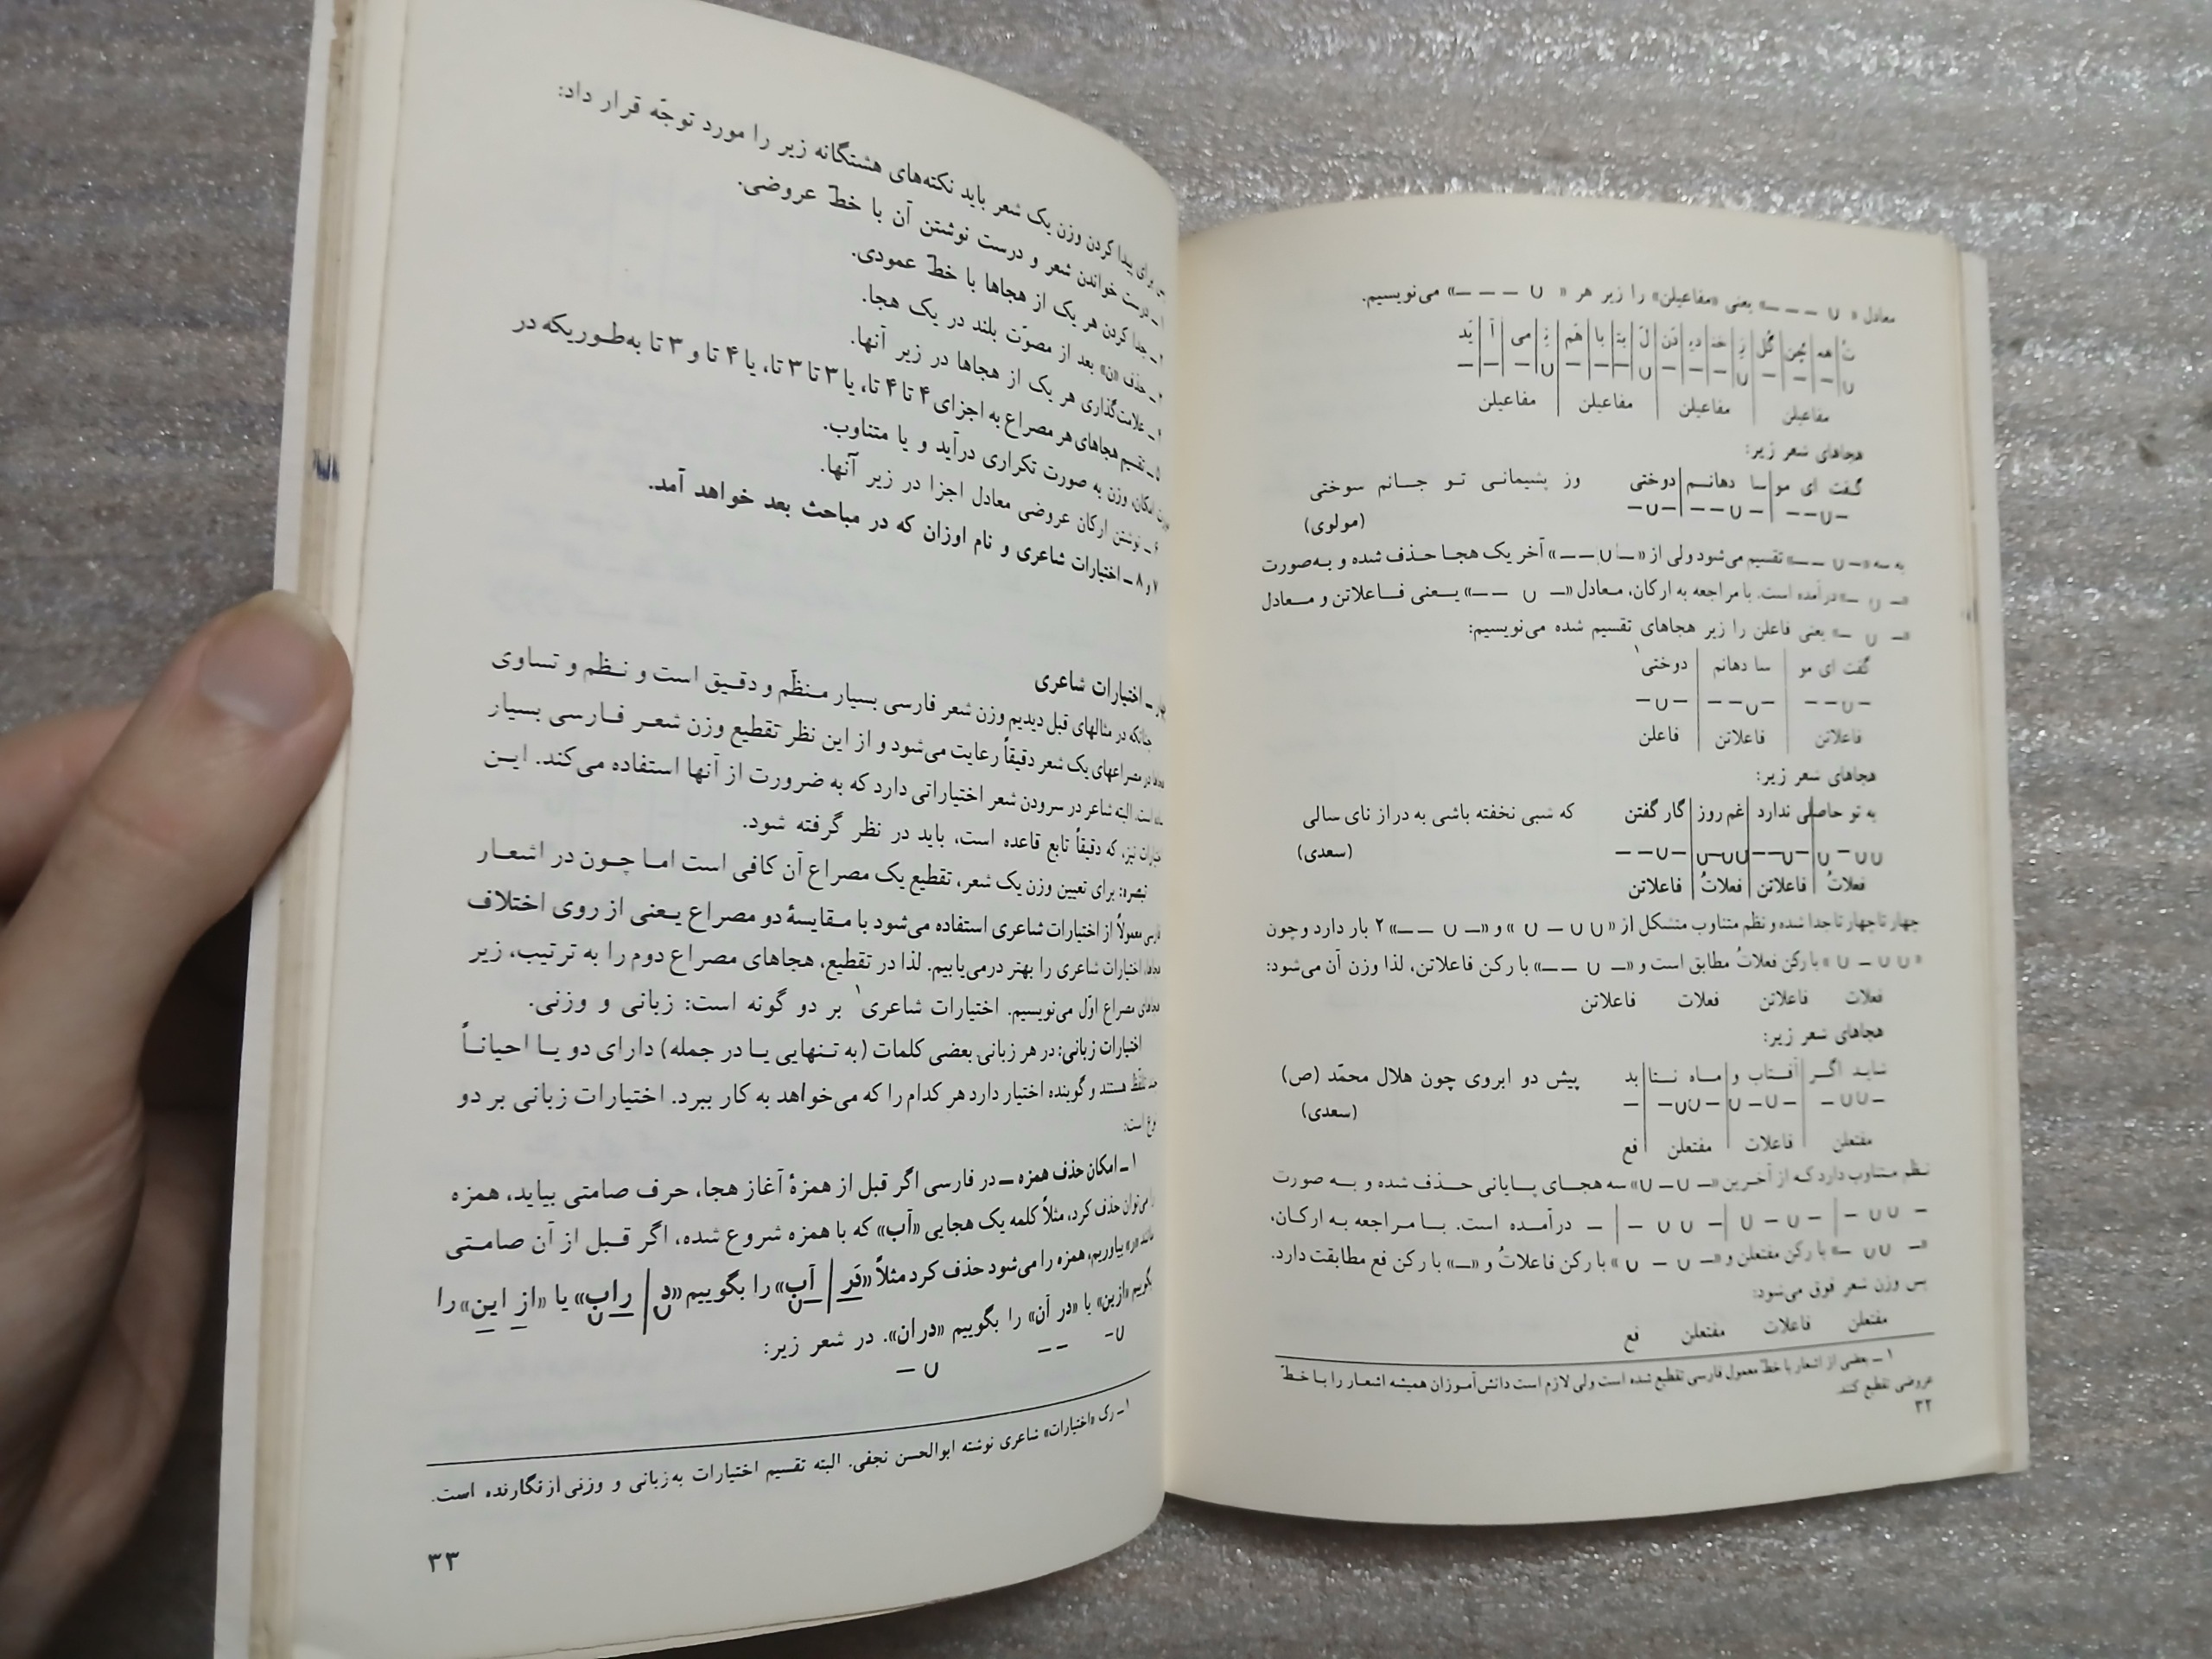 معادل «U – – –» یعنی «مفاعیلن» را زیر هر «U – – –» می‌نویسیم.
تُ | هم | چُن | گُل | زِ | خن | دی | دَن | لَ | بت | با | هَم | نِ | می | آ | یَد
U – – – | U – – – | U – – – | U – – –
مفاعیلن | مفاعیلن | مفاعیلن | مفاعیلن
هجاهای شعر زیر:
گفت ای مو|سا دهانم|دوختی وز پشیمانی تو جانم سوختی
– U – – | – U – – | – U – (مولوی)
به سه «– U – –» تقسیم می‌شود ولی از «– U – –» آخر یک هجا حذف شده و به‌صورت
«– U –» درآمده است. با مراجعه به ارکان، معادل «– U – –» یعنی فاعلاتن و معادل
«– U –» یعنی فاعلن را زیر هجاهای تقسیم شده می‌نویسیم:
گفت ای مو | سا دهانم | دوختی۱
– U – – | – U – – | – U –
فاعلاتن | فاعلاتن | فاعلن
هجاهای شعر زیر:
به تو حاصلی ندارد|غم روز|گار گفتن که شبی نخفته باشی به دراز نای سالی
U U – U | – U – – | U U – U | – U – – (سعدی)
فعلاتُ | فاعلاتن | فعلاتُ | فاعلاتن
چهار تا چهار تا جدا شده و نظم متناوب متشکل از «U U – U» و «– U – –» ۲ بار دارد و چون
«U U – U» با رکن فعلاتُ مطابق است و «– U – –» با رکن فاعلاتن، لذا وزن آن می‌شود:
فعلات فاعلاتن فعلات فاعلاتن
هجاهای شعر زیر:
شاید اگر|آفتاب و|ماه نتا|بد پیش دو ابروی چون هلال محمّد (ص)
– U U – | – U – U | – U U – | – (سعدی)
مفتعلن | فاعلات | مفتعلن | فع
نظم متناوب دارد که از آخرین «– U – U» سه هجای پایانی حذف شده و به صورت
– U U – | – U – U | – U U – | – درآمده است. با مراجعه به ارکان،
«– U U –» با رکن مفتعلن و «– U – U» با رکن فاعلاتُ و «–» با رکن فع مطابقت دارد.
پس وزن شعر فوق می‌شود:
مفتعلن فاعلات مفتعلن فع
۱ – بعضی از اشعار با خطّ معمول فارسی تقطیع شده است ولی لازم است دانش‌آموزان همیشه اشعار را با خطّ
عروضی تقطیع کنند.
۳۲
برای پیدا کردن وزن یک شعر باید نکته‌های هشتگانه زیر را مورد توجّه قرار داد:
۱ – درست خواندن شعر و درست نوشتن آن با خطّ عروضی.
۲ – جدا کردن هر یک از هجاها با خطّ عمودی.
۳ – حذف «ن» بعد از مصوّت بلند در یک هجا.
۴ – علامت‌گذاری هر یک از هجاها در زیر آنها.
۵ – تقسیم هجاهای هر مصراع به اجزای ۴ تا ۴ تا، یا ۳ تا ۳ تا، یا ۴ تا و ۳ تا به‌طوریکه در
صورت امکان، وزن به صورت تکراری درآید و یا متناوب.
۶ – نوشتن ارکان عروضی معادل اجزا در زیر آنها.
۷ و ۸ – اختیارات شاعری و نام اوزان که در مباحث بعد خواهد آمد.
– اختیارات شاعری
چنانکه در مثالهای قبل دیدیم وزن شعر فارسی بسیار منظّم و دقیق است و نظم و تساوی
هجاها در مصراعهای یک شعر دقیقاً رعایت می‌شود و از این نظر تقطیع وزن شعر فارسی بسیار
ساده است. البته شاعر در سرودن شعر اختیاراتی دارد که به ضرورت از آنها استفاده می‌کند. این
اختیارات نیز، که دقیقاً تابع قاعده است، باید در نظر گرفته شود.
تبصره: برای تعیین وزن یک شعر، تقطیع یک مصراع آن کافی است اما چون در اشعار
فارسی معمولاً از اختیارات شاعری استفاده می‌شود با مقایسهٔ دو مصراع یعنی از روی اختلاف
هجاها، اختیارات شاعری را بهتر درمی‌یابیم. لذا در تقطیع، هجاهای مصراع دوم را به ترتیب، زیر
هجاهای مصراع اوّل می‌نویسیم. اختیارات شاعری۱ بر دو گونه است: زبانی و وزنی.
اختیارات زبانی: در هر زبانی بعضی کلمات (به تنهایی یا در جمله) دارای دو یا احیاناً
چند تلفّظ هستند و گوینده اختیار دارد هر کدام را که می‌خواهد به کار ببرد. اختیارات زبانی بر دو
نوع است:
۱ – امکان حذف همزه – در فارسی اگر قبل از همزهٔ آغاز هجا، حرف صامتی بیاید، همزه
را می‌توان حذف کرد، مثلاً کلمه یک هجایی «آب» که با همزه شروع شده، اگر قبل از آن صامتی
مانند «ر» بیاوریم، همزه را می‌شود حذف کرد مثلاً «دَر | آب» را بگوییم «دَ | راب» یا «از این» را
بگوییم «ازین» یا «در آن» را بگوییم «دران». در شعر زیر:
U – – – U –
۱ – رک «اختیارات» شاعری نوشته ابوالحسن نجفی. البته تقسیم اختیارات به‌زبانی و وزنی از نگارنده است.
۳۳